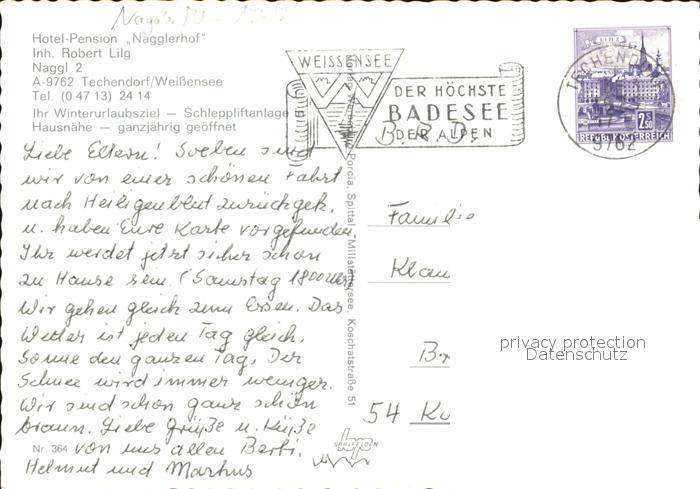 Hotel-Pension „Nagglerhof"
Inh. Robert Lilg
Naggl 2
A-9762 Techendorf/Weißensee
Tel. (0 47 13) 24 14
Ihr Winterurlaubsziel — Schleppliftanlage
Hausnähe — ganzjährig geöffnet
WEISSENSEE
DER HÖCHSTE
BADESEE
DER ALPEN
LINZ
REPUBLIK ÖSTERREICH
2.50
TECHENDO
9762
B.R.D.
Liebe Eltern! Soeben sind
wir von einer schönen Fahrt
nach Heiligenblut zurückgek.
u. haben Eure Karte vorgefunden.
Ihr werdet jetzt sicher schon
zu Hause sein. (Samstag 18 00 Uhr)
Wir gehen gleich zum Essen. Das
Wetter ist jeden Tag gleich,
Sonne den ganzen Tag. Der
Schnee wird immer weniger.
Wir sind schon ganz schön
braun. Liebe Grüße u. Küße
von uns allen Berti,
Helmut und Markus
Nr. 364
Porcia, Spittal, Millstättersee, Koschatstraße 51
SAALFELDEN
Familie
Klau
Br
54 Ko
privacy protection
Datenschutz